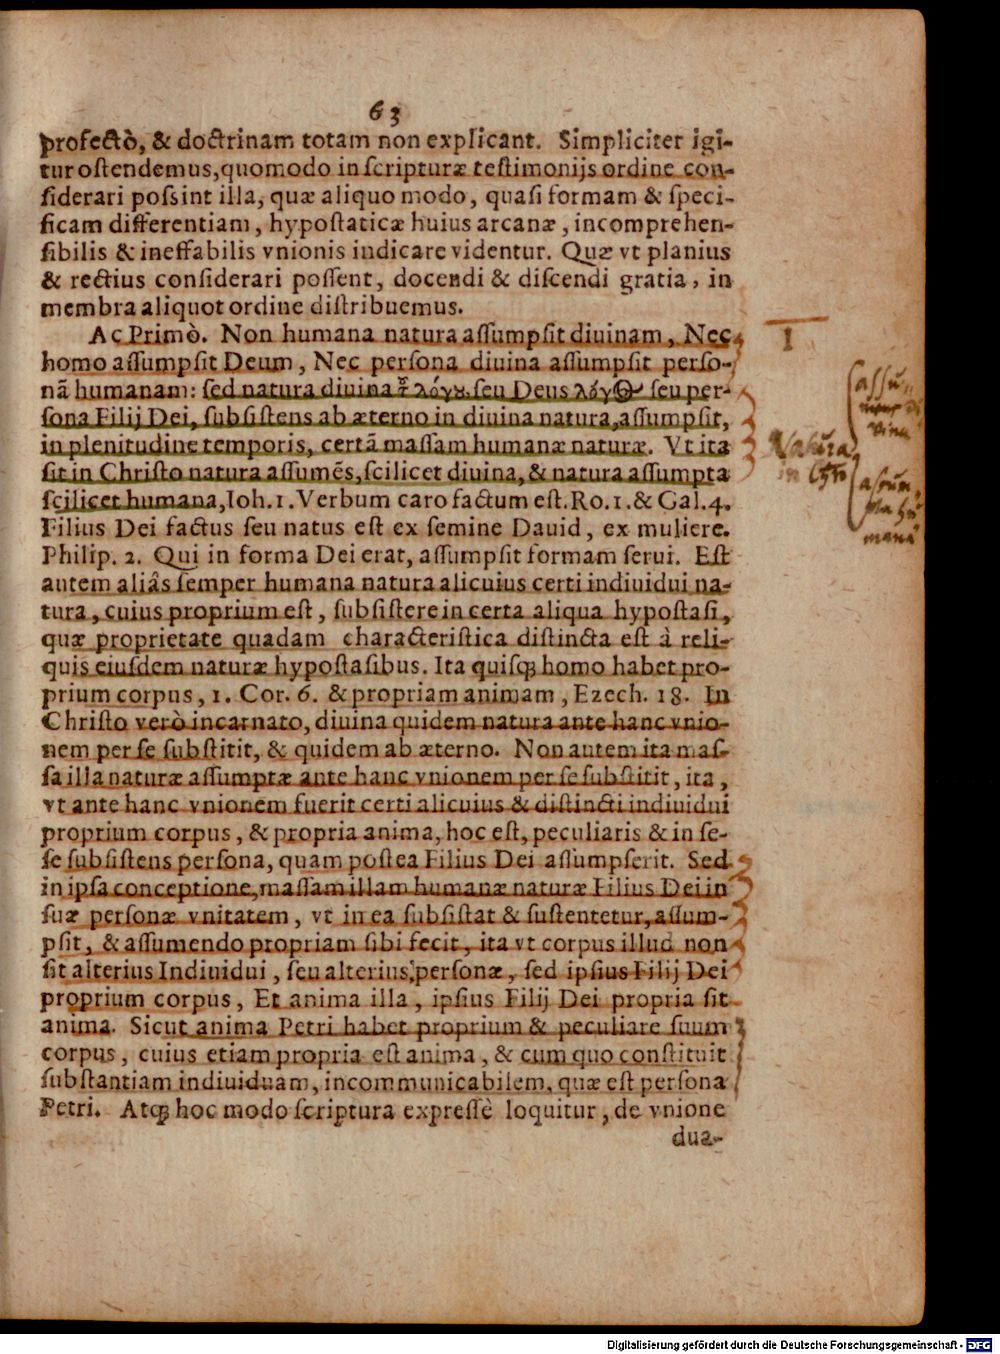 63
profectò, & doctrinam totam non explicant. Simpliciter igi-
tur ostendemus, quomodo in scripturæ testimonijs ordine con-
siderari possint illa, quæ aliquo modo, quasi formam & speci-
ficam differentiam, hypostaticæ huius arcanæ, incomprehen-
sibilis & ineffabilis vnionis indicare videntur. Quæ vt planius
& rectius considerari possent, docendi & discendi gratia, in
membra aliquot ordine distribuemus.
Ac Primò. Non humana natura assumpsit diuinam, Nec
homo assumpsit Deum, Nec persona diuina assumpsit perso-
nã humanam: sed natura diuina λόγου. seu Deus λόγος seu per-
sona Filij Dei, subsistens ab æterno in diuina natura, assumpsit,
in plenitudine temporis, certã massam humanæ naturæ. Vt ita
sit in Christo natura assumẽs, scilicet diuina, & natura assumpta
scilicet humana, Ioh. 1. Verbum caro factum est. Ro. 1. & Gal. 4.
Filius Dei factus seu natus est ex semine Dauid, ex muliere.
Philip. 2. Qui in forma Dei erat, assumpsit formam serui. Est
autem aliâs semper humana natura alicuius certi indiuidui na-
tura, cuius proprium est, subsistere in certa aliqua hypostasi,
quæ proprietate quadam characteristica distincta est à reli-
quis eiusdem naturæ hypostasibus. Ita quisq; homo habet pro-
prium corpus, 1. Cor. 6. & propriam animam, Ezech. 18. In
Christo verò incarnato, diuina quidem natura ante hanc vnio-
nem per se substitit, & quidem ab æterno. Non autem ita mas-
sa illa naturæ assumptæ ante hanc vnionem per se substitit, ita,
vt ante hanc vnionem fuerit certi alicuius & distincti indiuidui
proprium corpus, & propria anima, hoc est, peculiaris & in se-
se subsistens persona, quam postea Filius Dei assumpserit. Sed
in ipsa conceptione, massam illam humanæ naturæ Filius Dei in
suæ personæ vnitatem, vt in ea subsistat & sustentetur, assum-
psit, & assumendo propriam sibi fecit, ita vt corpus illud non
sit alterius Indiuidui, seu alterius personæ, sed ipsius Filij Dei
proprium corpus, Et anima illa, ipsius Filij Dei propria sit
anima. Sicut anima Petri habet proprium & peculiare suum
corpus, cuius etiam propria est anima, & cum quo constituit
substantiam indiuiduam, incommunicabilem, quæ est persona
Petri. Atq; hoc modo scriptura expressè loquitur, de vnione
dua-
I
Natura
in
Digitalisierung gefördert durch die Deutsche Forschungsgemeinschaft - DFG